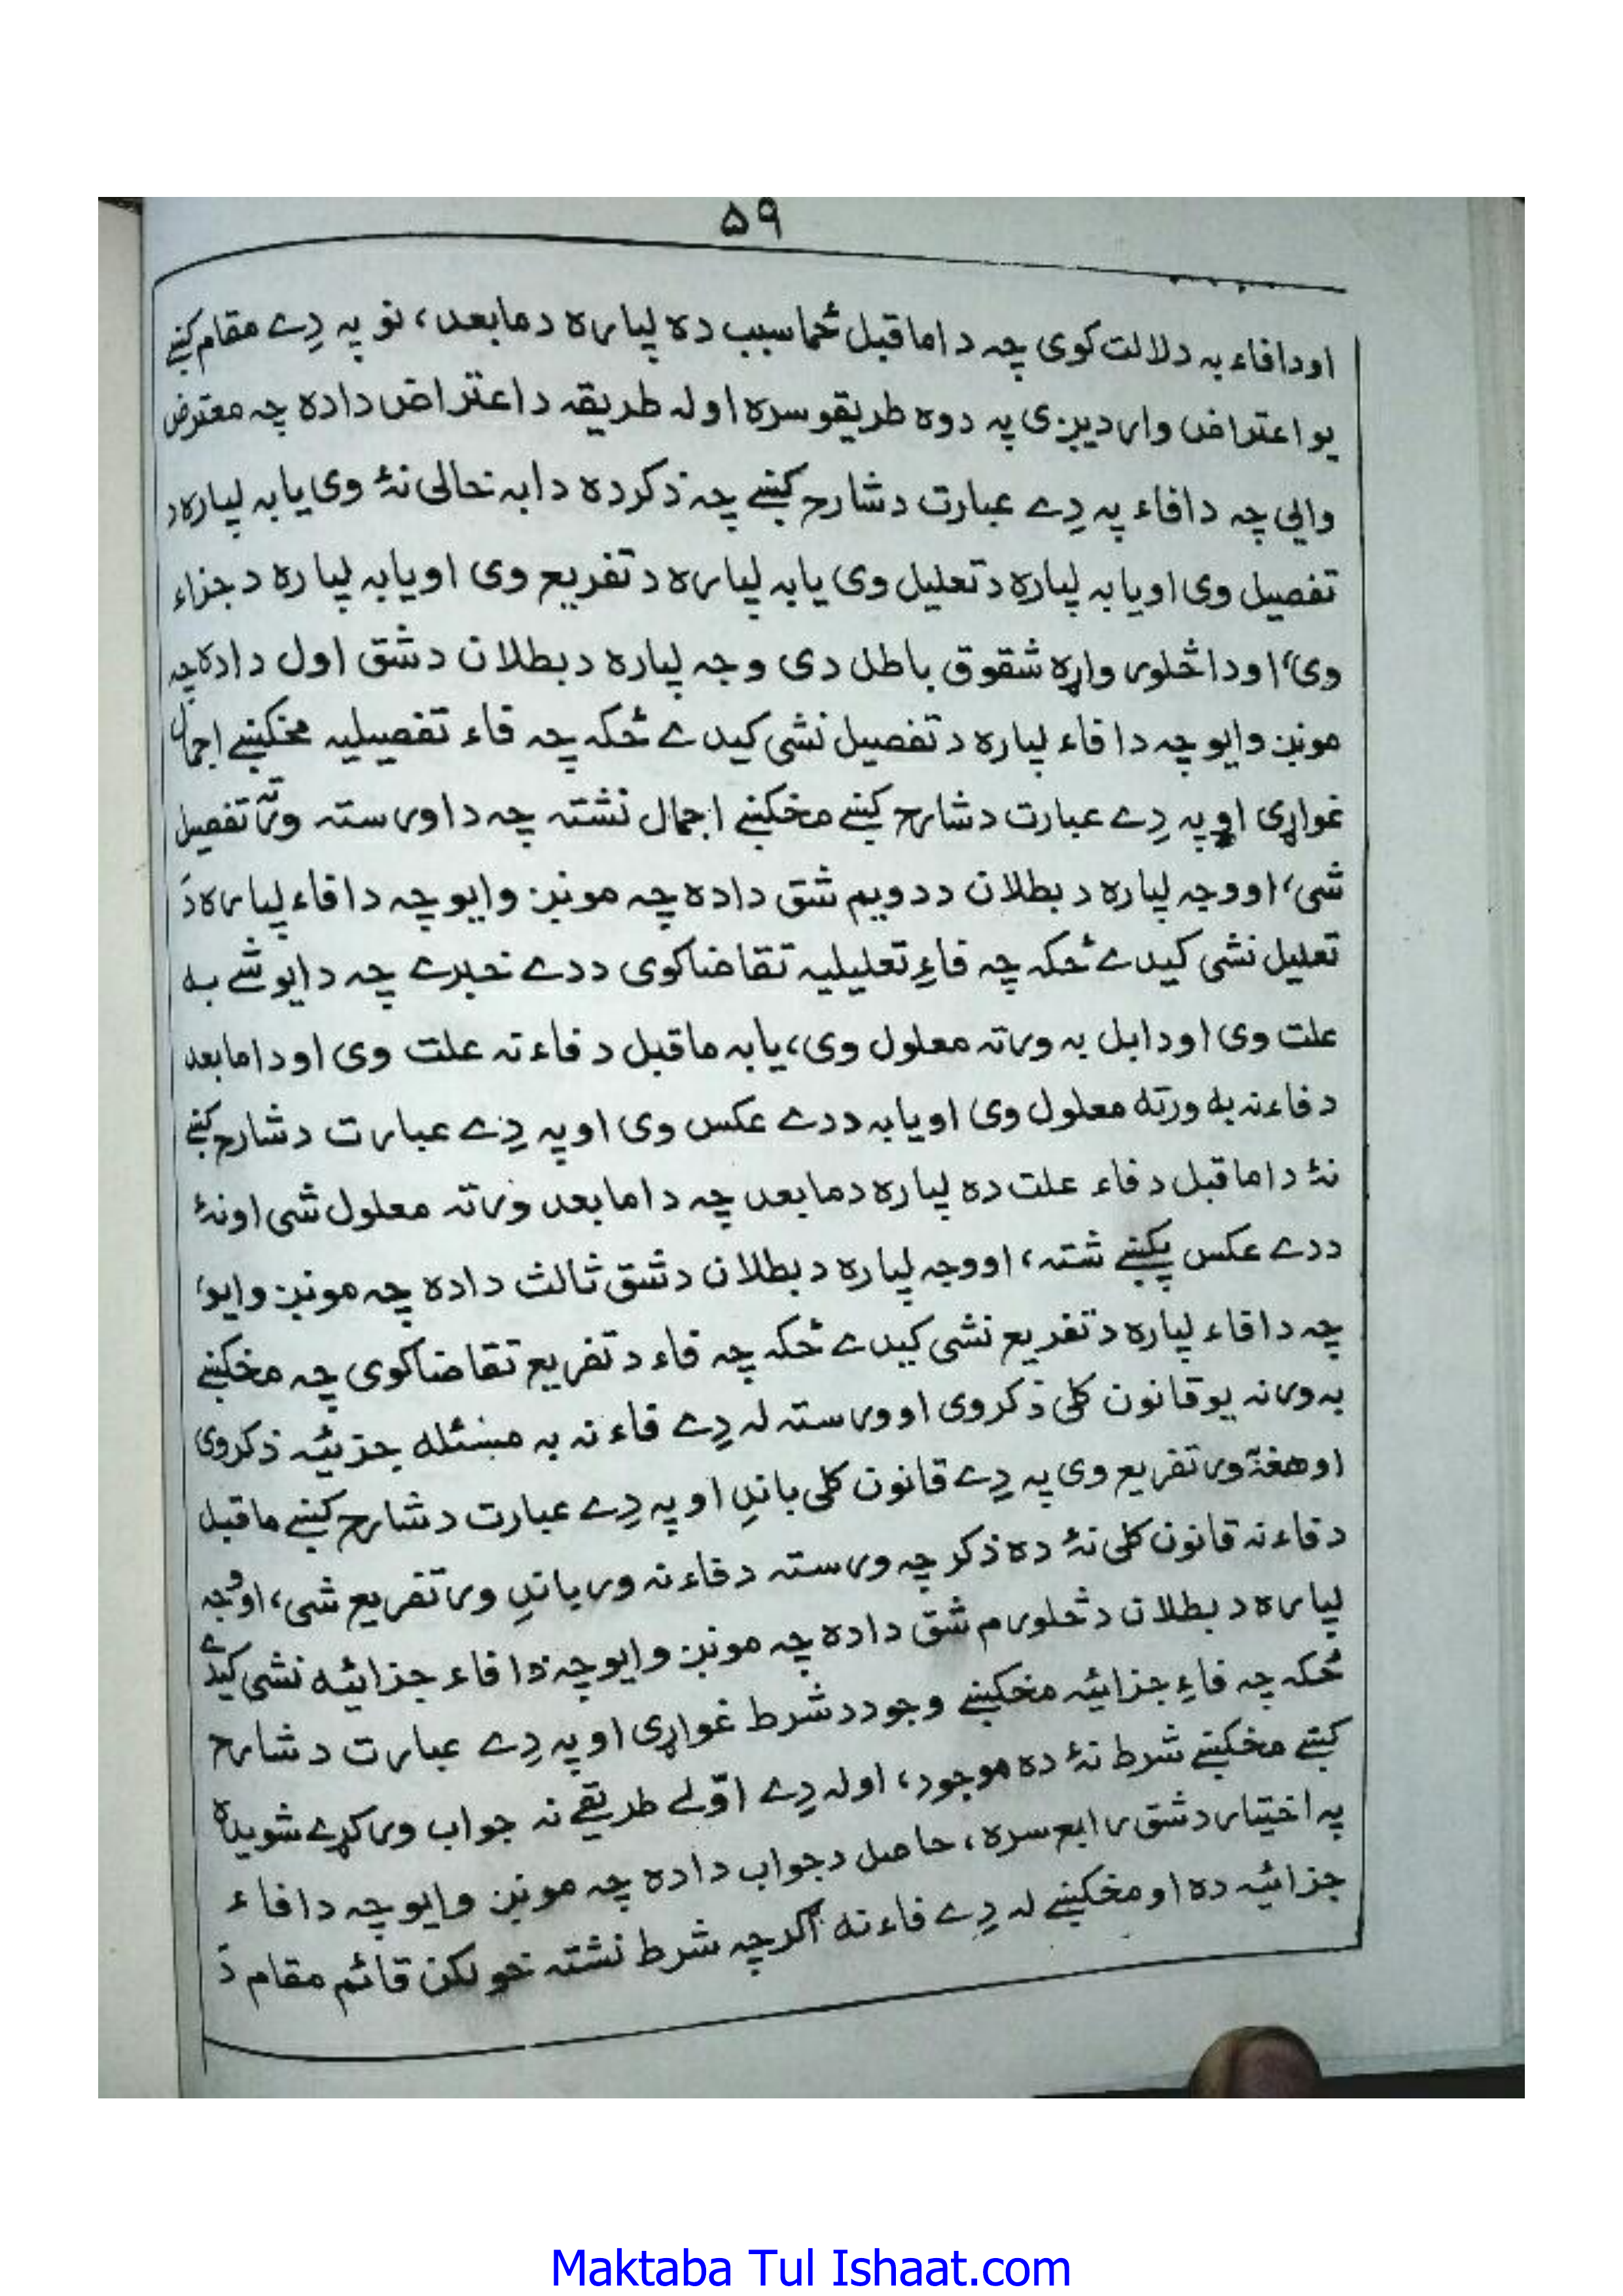 ۵۹
اودافاء به دلالت کوی چه داماقبل ځما سبب ده لپاره دمابعد، نو په دِے مقام کښے
یو اعتراض واردیږی په دوه طریقو سره اوله طریقه داعتراض داده چه معترض
وایی چه دافاء په دِے عبارت دشارح کښے چه ذکرده دابه خالی نۀ وی یابه لپاره د
تفصیل وی اویابه لپاره دتعلیل وی یابه لپاره دتفریع وی اویابه لپاره دجزاء
وی، اوداڅلور واړه شقوق باطل دی وجه لپاره دبطلان دشق اول داده چه
مونږ وایو چه دافاء لپاره دتفصیل نشی کیدے ځکه چه فاء تفصیلیه مخکښے اجمال
غواړی اوپه دِے عبارت دشارح کښے مخکښے اجمال نشته چه داورسته ورته تفصیل
شی، اووجه لپاره دبطلان ددویم شق داده چه مونږ وایو چه دافاء لپاره دَ
تعلیل نشی کیدے ځکه چه فاءِ تعلیلیه تقاضا کوی ددے خبرے چه دایو شے به
علت وی اودابل به ورته معلول وی، یابه ماقبل دفاء ته علت وی اودامابعد
دفاءنه به ورته معلول وی اویابه ددے عکس وی اوپه دِے عبارت دشارح کښے
نۀ داماقبل دفاء علت ده لپاره دمابعد چه دامابعد ورته معلول شی اونۀ
ددے عکس پکښے شته، اووجه لپاره دبطلان دشق ثالث داده چه مونږ وایو،
چه دافاء لپاره دتفریع نشی کیدے ځکه چه فاء دتفریع تقاضا کوی چه مخکښے
به ورنه یو قانون کلی ذکروی اوورسته له دِے فاءنه به مسئله جزئیه ذکروی
اوهغه ور تفریع وی په دِے قانون کلی باندِ اوپه دِے عبارت دشارح کښے ماقبل
دفاءنه قانون کلی نۀ ده ذکر چه ورسته دفاءنه ورباندِ ور تفریع شی، اووجه
لپاره دبطلان دڅلورم شق داده چه مونږ وایو چه دا فاء جزائیه نشی کیدے
ځکه چه فاءِ جزائیه مخکښے وجود دشرط غواړی اوپه دِے عبارت دشارح
کښے مخکښے شرط نۀ ده موجود، اوله دِے اوّلے طریقے نه جواب ورکړے شویده
په اختیار دشق رابع سره، حاصل دجواب داده چه مونږ وایو چه دافاء
جزائیه ده اومخکښے له دِے فاءنه اگرچه شرط نشته خو لکن قائم مقام دَ
Maktaba Tul Ishaat.com